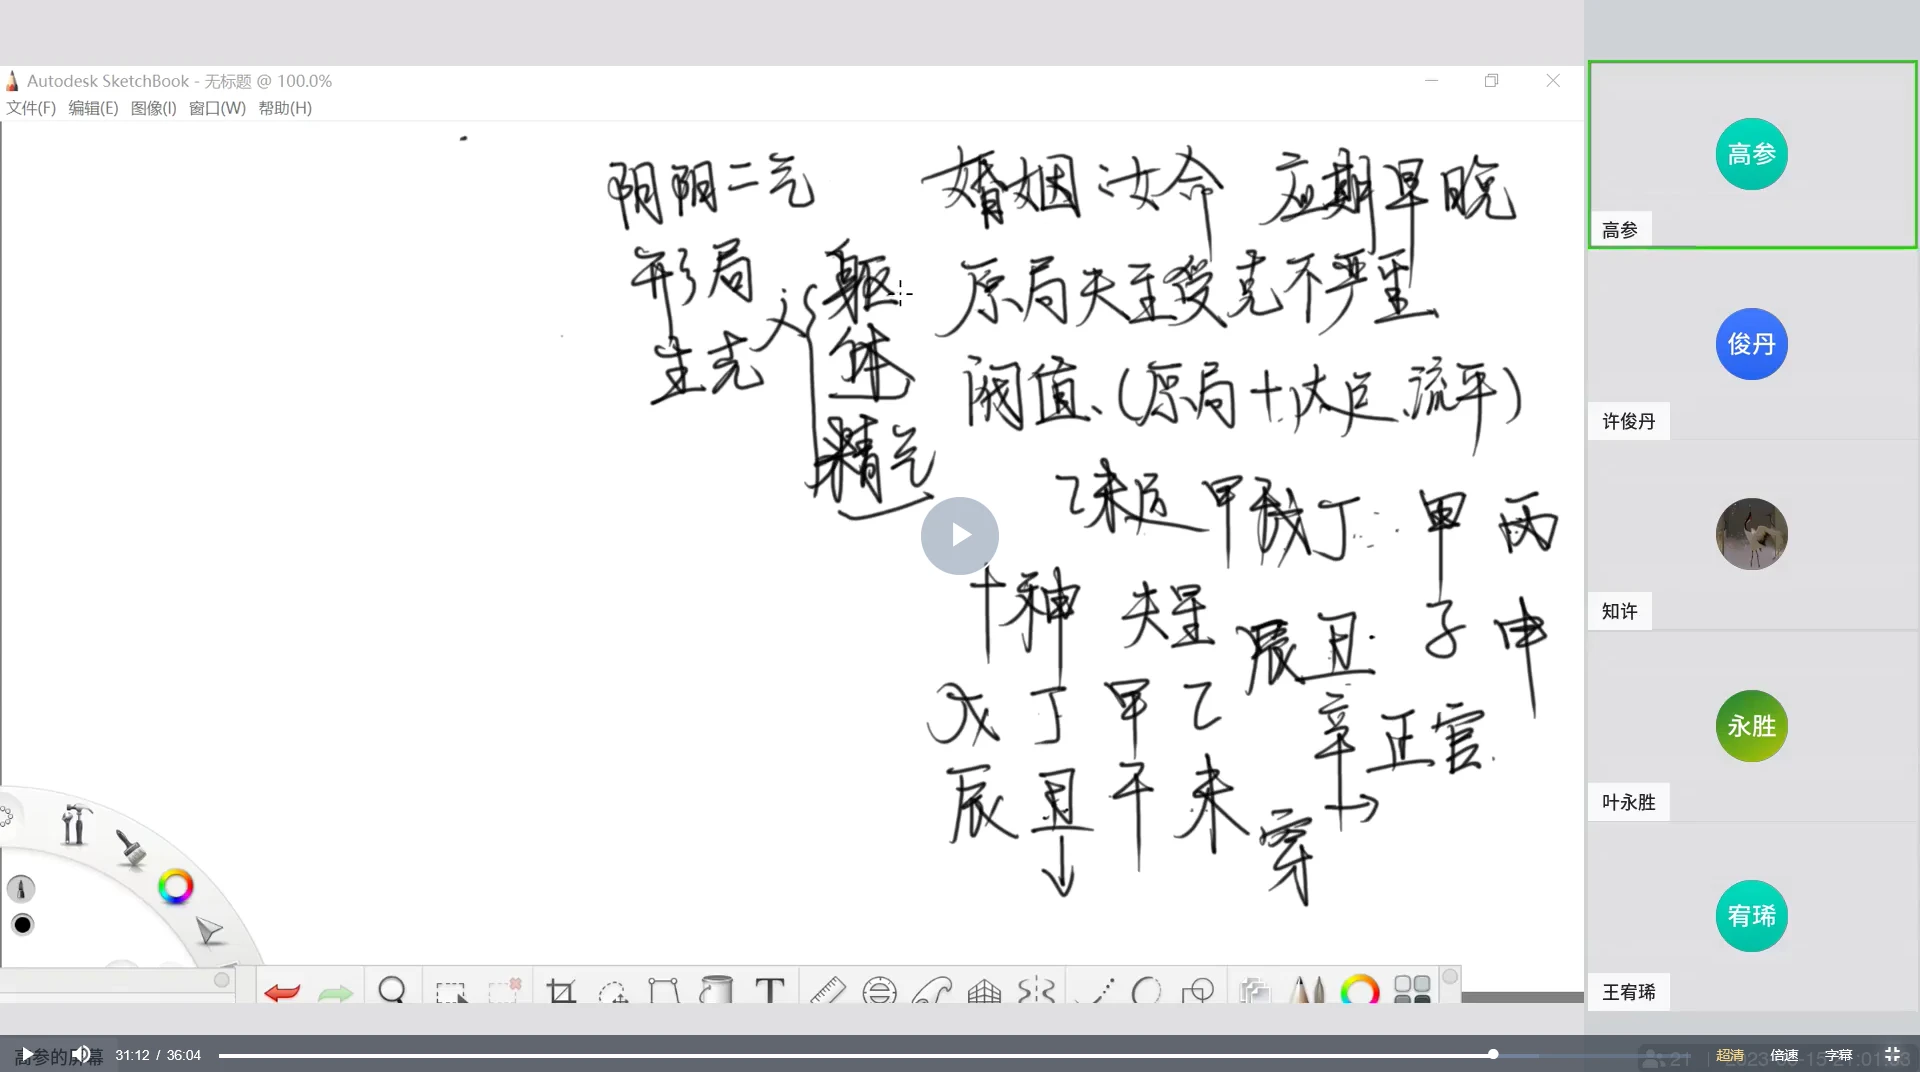 Autodesk SketchBook - 无标题 @ 100.0%
文件(F) 编辑(E) 图像(I) 窗口(W) 帮助(H)
阴阴二气
形局
生克
躯
体
精气
婚姻:女命 应期早晚
原局夫主受克不严重
阀值、(原局十大运、流年)
乙未运 甲戌丁 甲 丙
十神 夫星 辰丑 子 申
戊 丁 甲 乙 辛 正官
辰 丑 午 未 穿
高参
高参
俊丹
许俊丹
知许
永胜
叶永胜
宥琋
王宥琋
高参的屏幕
31:12 / 36:04
超清 倍速 字幕
21